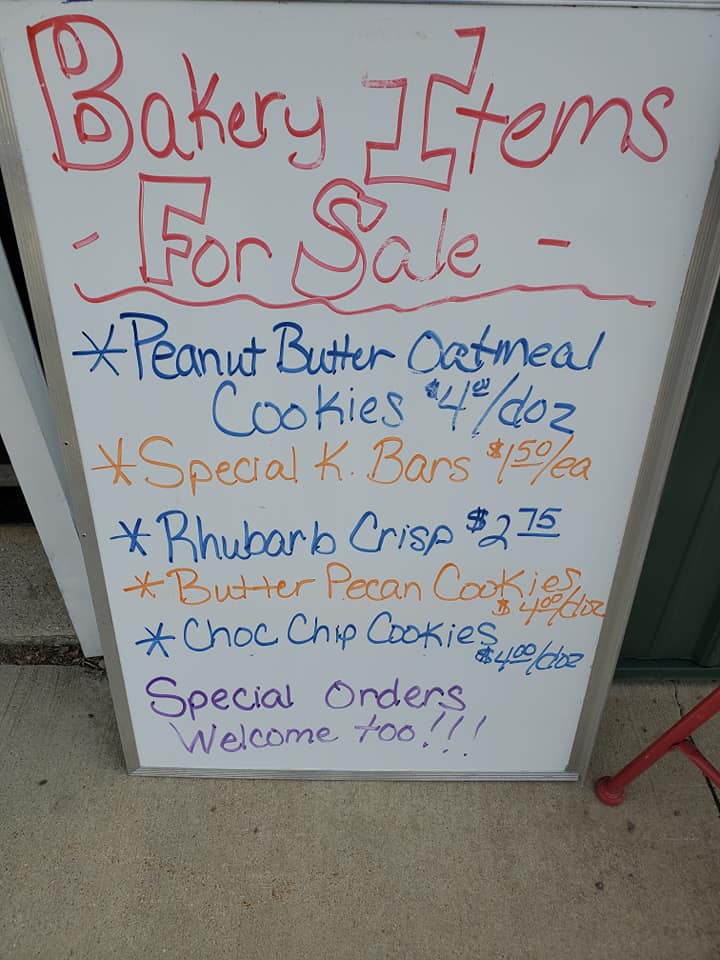 Bakery Items
- For Sale -
* Peanut Butter Oatmeal
Cookies $4.00/doz
* Special K. Bars $1.50/ea
* Rhubarb Crisp $2.75
* Butter Pecan Cookies
$4.00/doz
* Choc Chip Cookies
$4.00/doz
Special Orders
Welcome too!!!